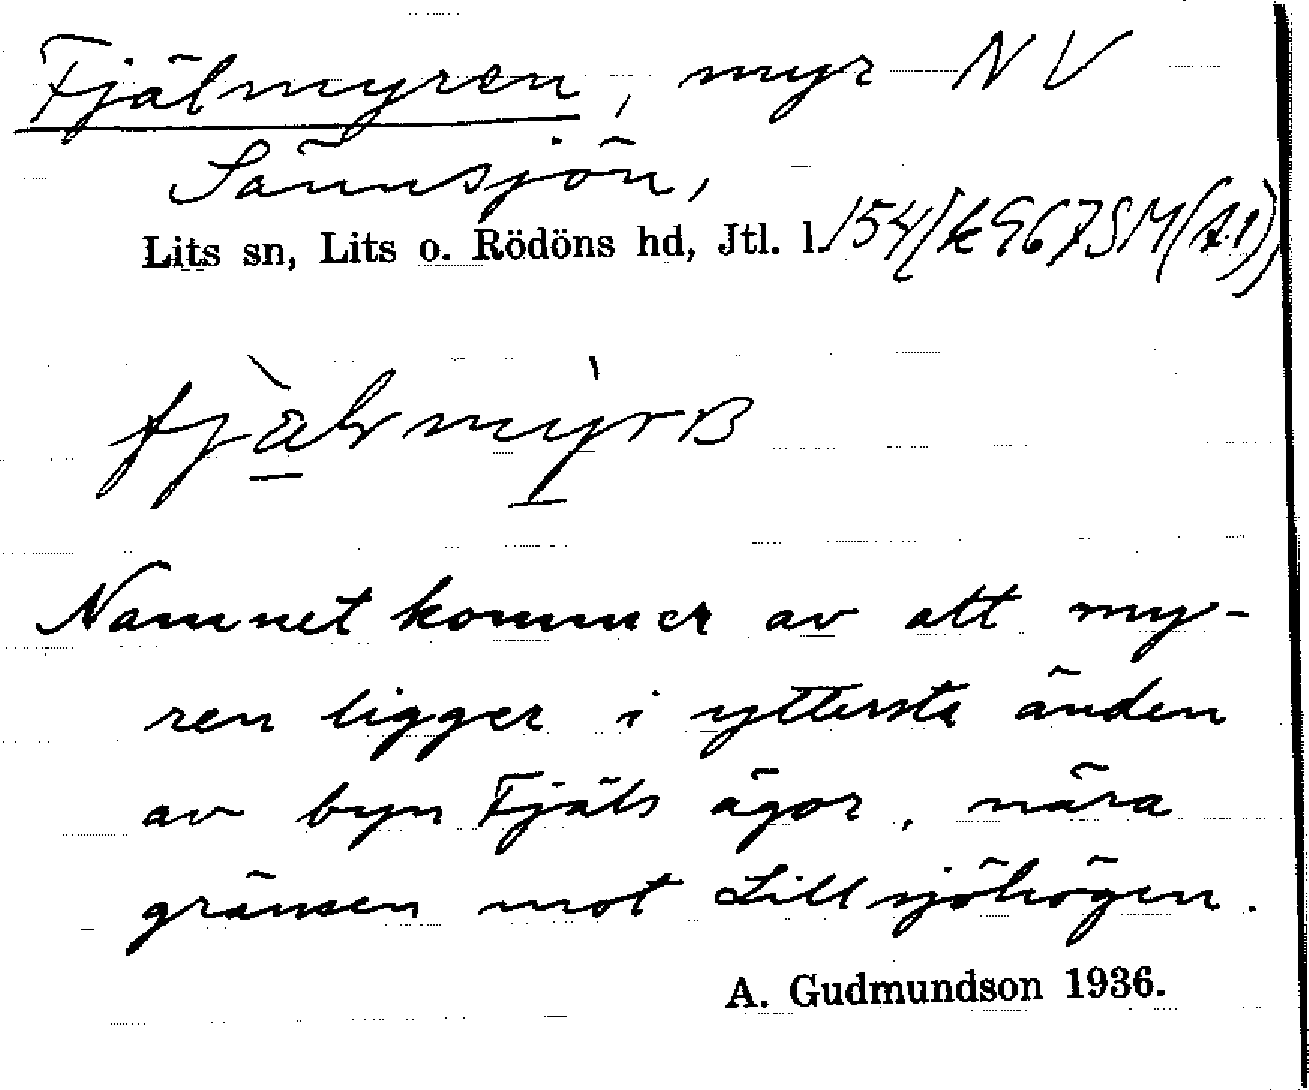 Fjälmyren, myr NV
Sännsjön,
Lits sn, Lits o. Rödöns hd, Jtl. l.
Namnet kommer av att my-
ren ligger i yttersta änden
av byn Fjäls ägor, nära
gränsen mot Lillsjöhögen.
A. Gudmundson 1936.